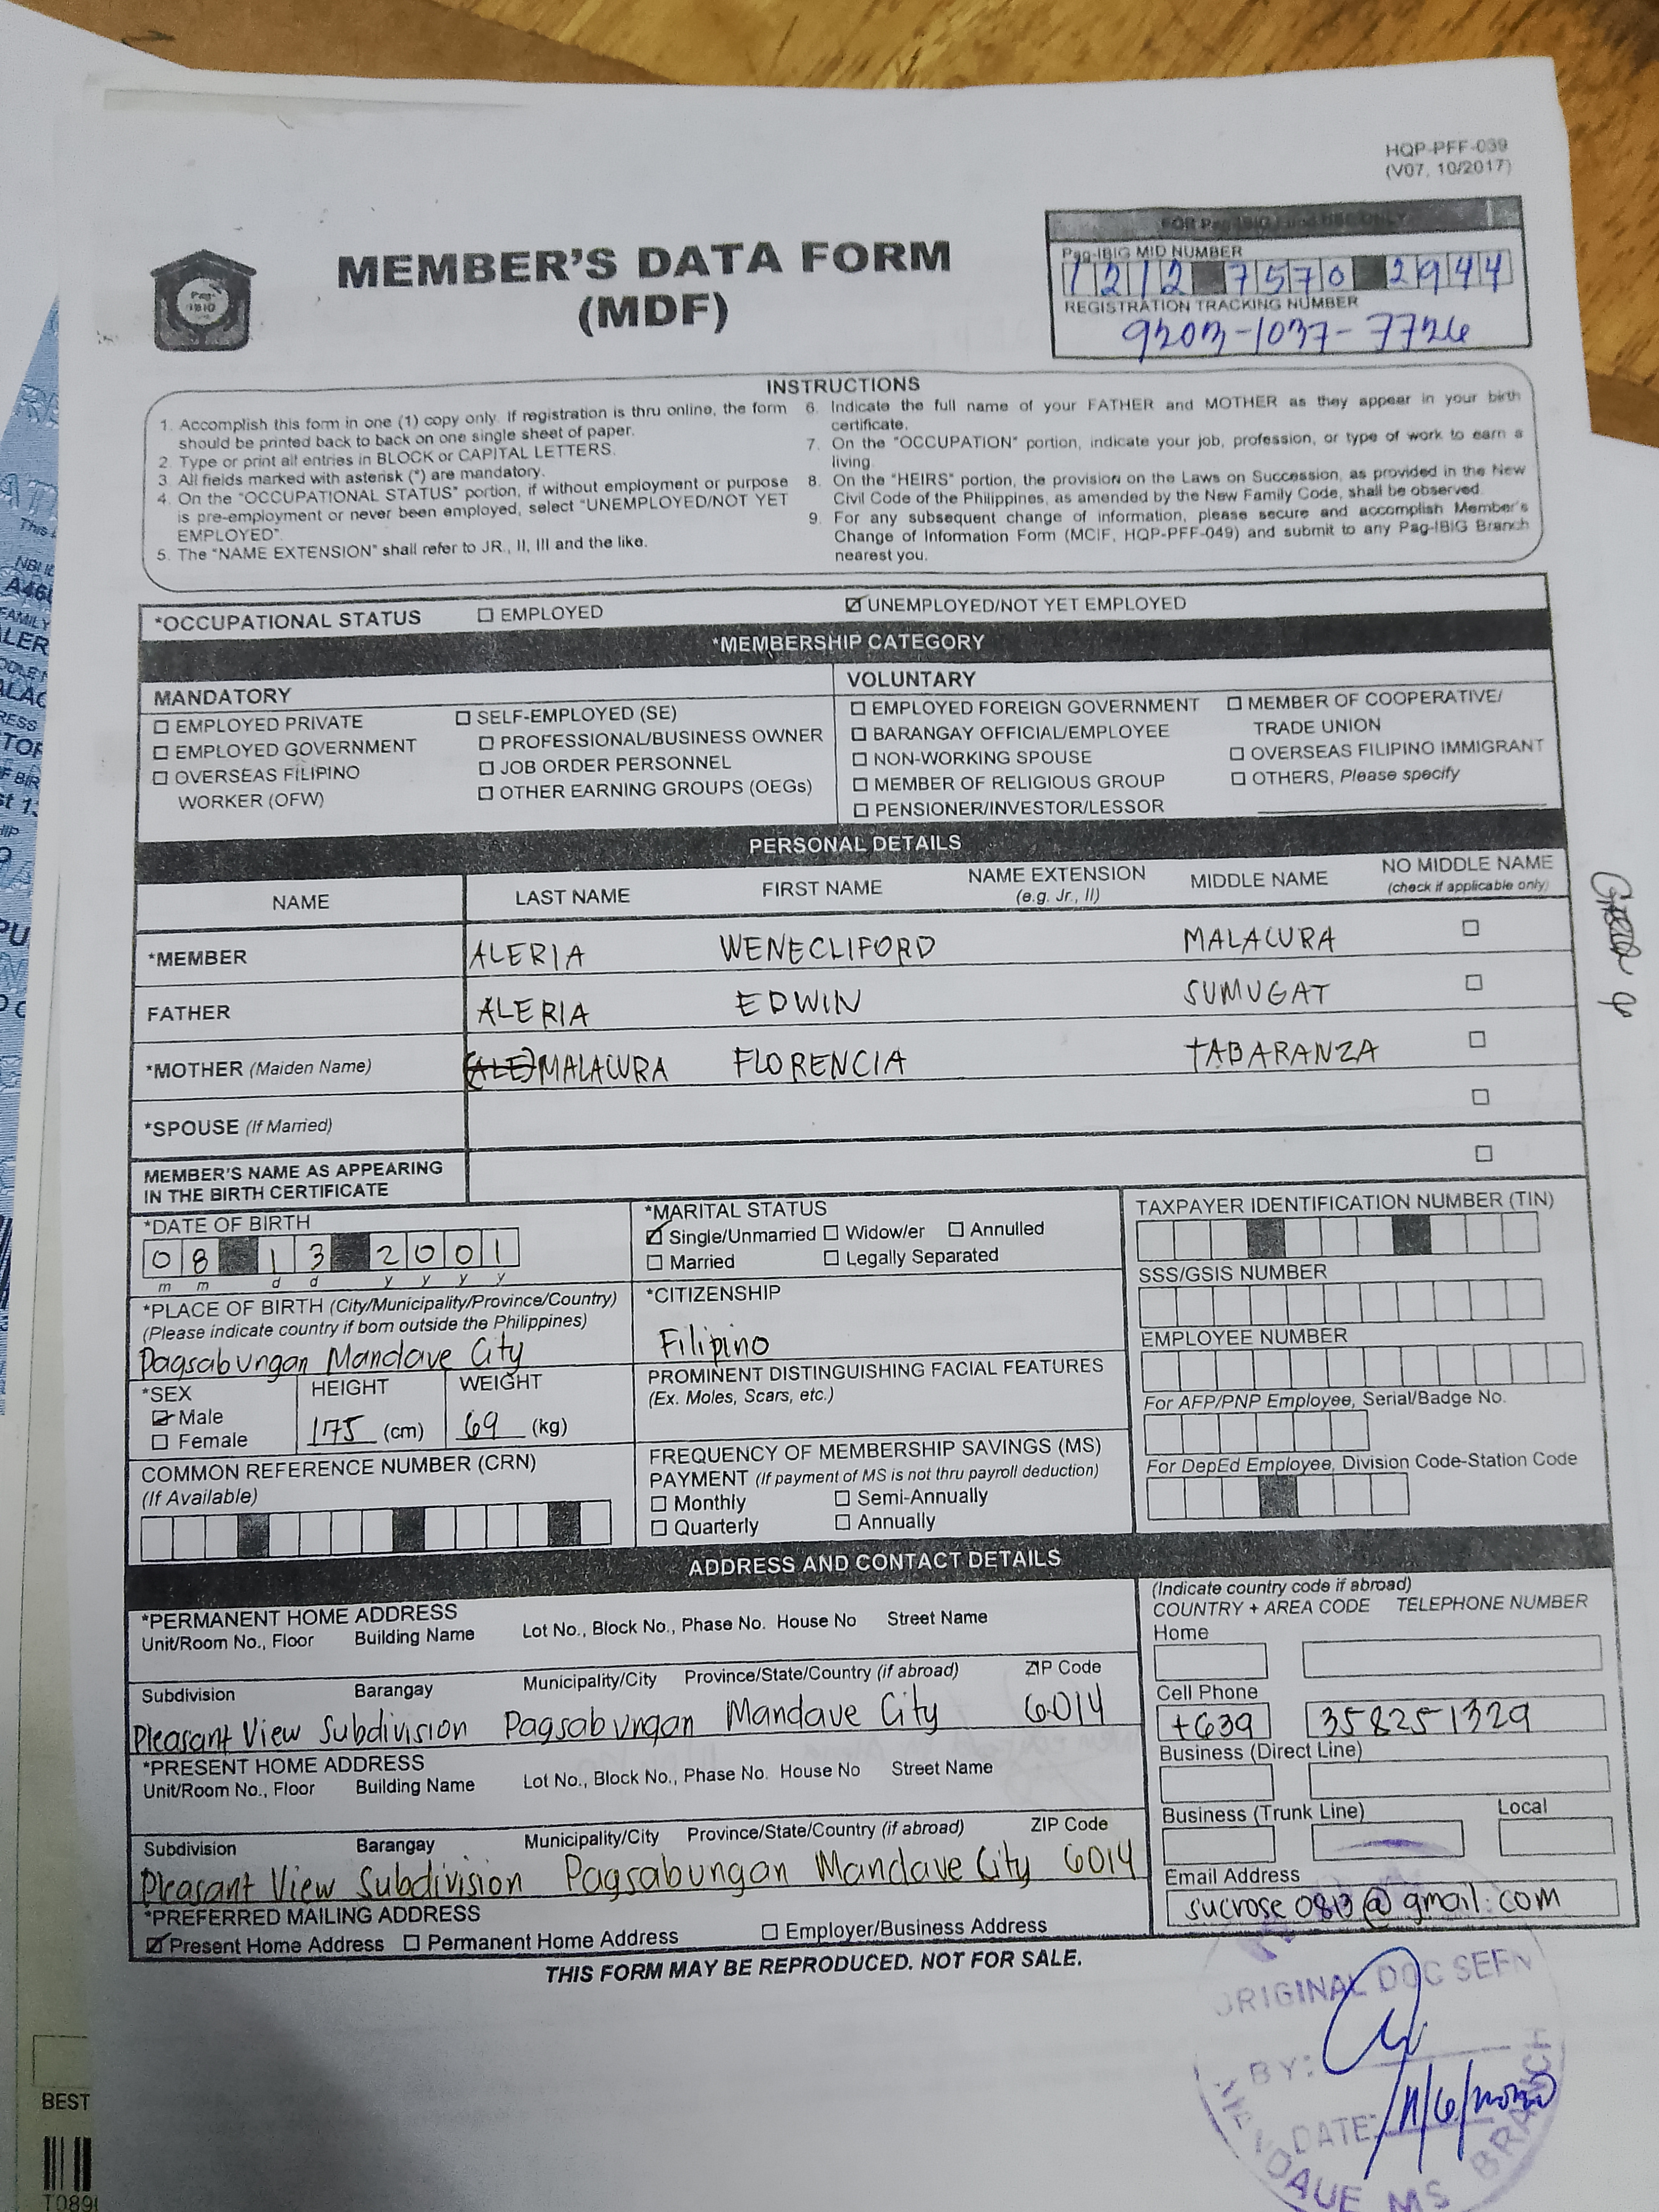 HQP-PFF-039
(V07, 10/2017)
FOR Pag-IBIG Fund USE ONLY
Pag-IBIG MID NUMBER
1212 7570 2944
REGISTRATION TRACKING NUMBER
Pag-IBIG
MEMBER'S DATA FORM
(MDF)
INSTRUCTIONS
1. Accomplish this form in one (1) copy only. If registration is thru online, the form
should be printed back to back on one single sheet of paper.
2. Type or print all entries in BLOCK or CAPITAL LETTERS.
3. All fields marked with asterisk (*) are mandatory.
4. On the "OCCUPATIONAL STATUS" portion, if without employment or purpose
is pre-employment or never been employed, select "UNEMPLOYED/NOT YET
EMPLOYED".
5. The "NAME EXTENSION" shall refer to JR., II, III and the like.
6. Indicate the full name of your FATHER and MOTHER as they appear in your birth
certificate.
7. On the "OCCUPATION" portion, indicate your job, profession, or type of work to earn a
living.
8. On the "HEIRS" portion, the provision on the Laws on Succession, as provided in the New
Civil Code of the Philippines, as amended by the New Family Code, shall be observed.
9. For any subsequent change of information, please secure and accomplish Member's
Change of Information Form (MCIF, HQP-PFF-049) and submit to any Pag-IBIG Branch
nearest you.
*OCCUPATIONAL STATUS EMPLOYED UNEMPLOYED/NOT YET EMPLOYED
*MEMBERSHIP CATEGORY
MANDATORY
EMPLOYED PRIVATE
EMPLOYED GOVERNMENT
OVERSEAS FILIPINO
WORKER (OFW)
SELF-EMPLOYED (SE)
PROFESSIONAL/BUSINESS OWNER
JOB ORDER PERSONNEL
OTHER EARNING GROUPS (OEGs)
VOLUNTARY
EMPLOYED FOREIGN GOVERNMENT
BARANGAY OFFICIAL/EMPLOYEE
NON-WORKING SPOUSE
MEMBER OF RELIGIOUS GROUP
PENSIONER/INVESTOR/LESSOR
MEMBER OF COOPERATIVE/
TRADE UNION
OVERSEAS FILIPINO IMMIGRANT
OTHERS, Please specify
PERSONAL DETAILS
NAME LAST NAME FIRST NAME NAME EXTENSION (e.g. Jr., II) MIDDLE NAME NO MIDDLE NAME (check if applicable only)
*MEMBER ALERIA WENECLIFORD MALACURA
FATHER ALERIA EDWIN SUMUGAT
*MOTHER (Maiden Name) (ALE) MALACURA FLORENCIA TABARANZA
*SPOUSE (If Married)
MEMBER'S NAME AS APPEARING
IN THE BIRTH CERTIFICATE
*DATE OF BIRTH
08 13 2001
m m d d y y y y
*PLACE OF BIRTH (City/Municipality/Province/Country)
(Please indicate country if born outside the Philippines)
Pagsabungan Mandaue City
*SEX HEIGHT WEIGHT
Male
Female
175 (cm) 69 (kg)
COMMON REFERENCE NUMBER (CRN)
(If Available)
*MARITAL STATUS
Single/Unmarried Widow/er Annulled
Married Legally Separated
*CITIZENSHIP
Filipino
PROMINENT DISTINGUISHING FACIAL FEATURES
(Ex. Moles, Scars, etc.)
FREQUENCY OF MEMBERSHIP SAVINGS (MS)
PAYMENT (If payment of MS is not thru payroll deduction)
Monthly Semi-Annually
Quarterly Annually
TAXPAYER IDENTIFICATION NUMBER (TIN)
SSS/GSIS NUMBER
EMPLOYEE NUMBER
For AFP/PNP Employee, Serial/Badge No.
For DepEd Employee, Division Code-Station Code
ADDRESS AND CONTACT DETAILS
*PERMANENT HOME ADDRESS
Unit/Room No., Floor Building Name Lot No., Block No., Phase No. House No Street Name
Subdivision Barangay Municipality/City Province/State/Country (if abroad) ZIP Code
Pleasant View Subdivision Pagsabungan Mandaue City 6014
*PRESENT HOME ADDRESS
Unit/Room No., Floor Building Name Lot No., Block No., Phase No. House No Street Name
Subdivision Barangay Municipality/City Province/State/Country (if abroad) ZIP Code
Pleasant View Subdivision Pagsabungan Mandaue City 6014
*PREFERRED MAILING ADDRESS
Present Home Address Permanent Home Address Employer/Business Address
(Indicate country code if abroad)
COUNTRY + AREA CODE TELEPHONE NUMBER
Home
Cell Phone
+639 358251329
Business (Direct Line)
Business (Trunk Line) Local
Email Address
sucrose0813@gmail.com
THIS FORM MAY BE REPRODUCED. NOT FOR SALE.
ORIGINAL DOC SEEN
BY:
DATE:
MANDAUE MS BRANCH
BEST